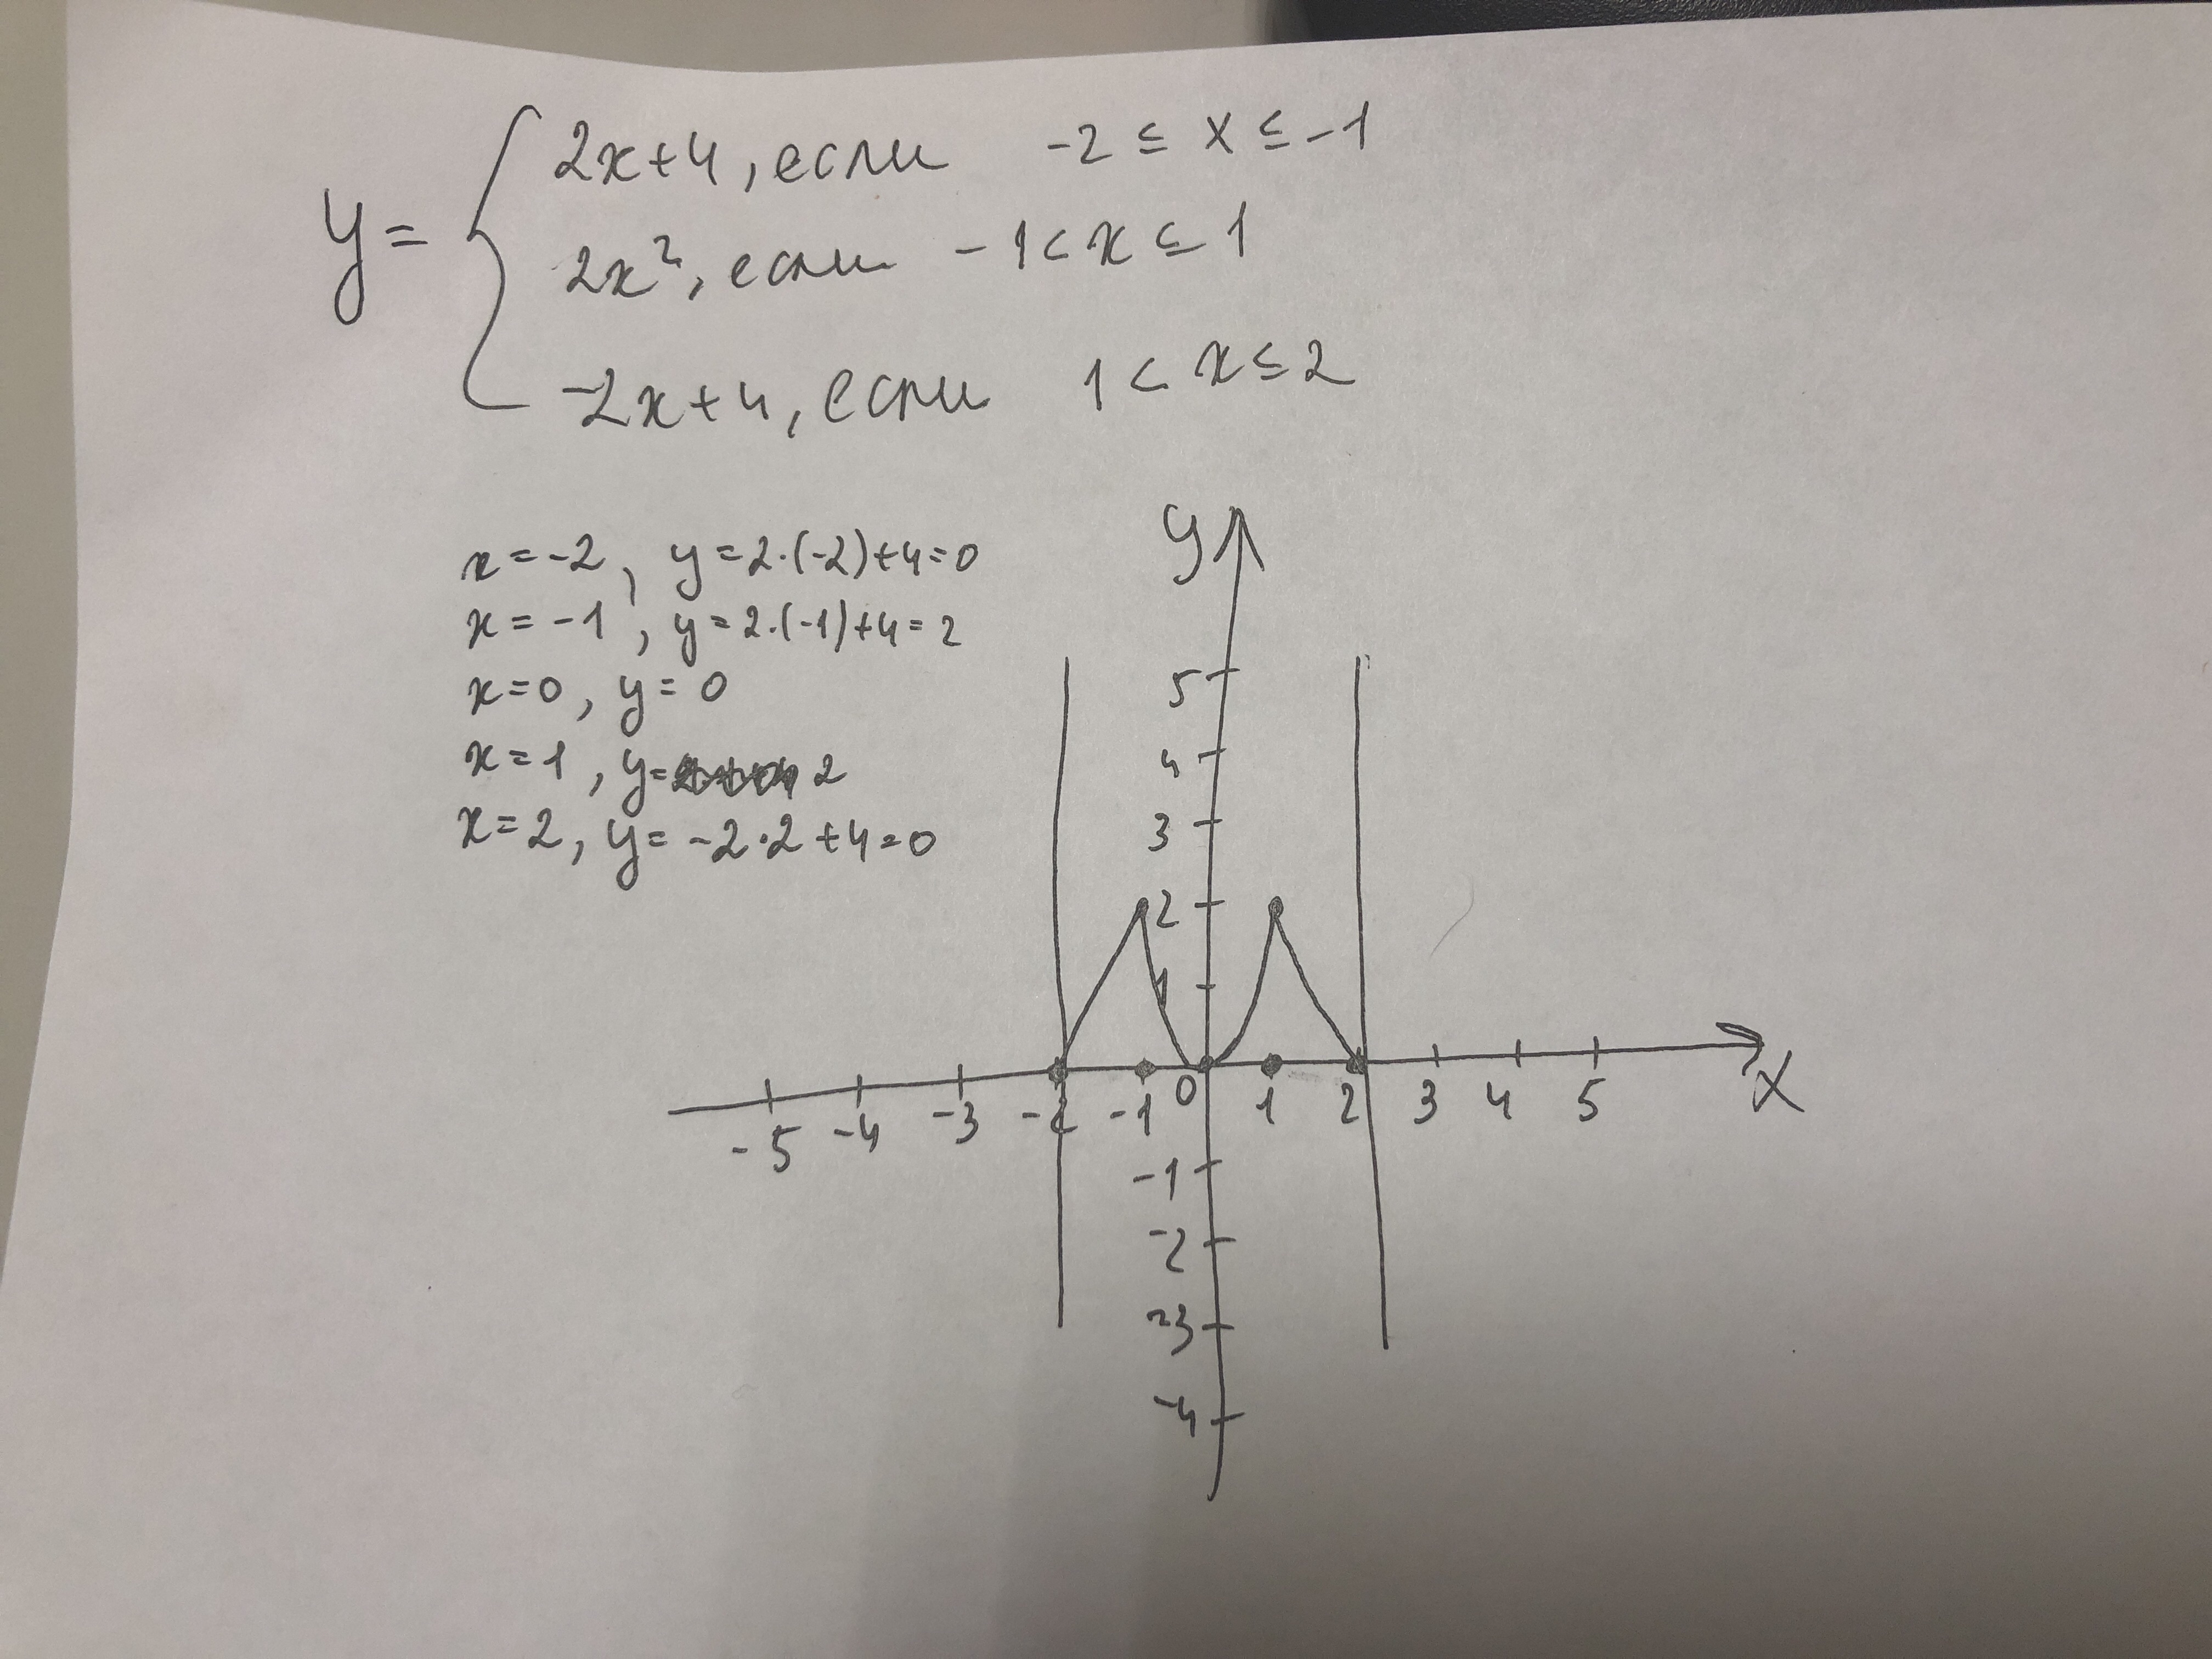 2x+4, если -2 ≤ x ≤ -1
y= { 2x², если -1 < x ≤ 1
-2x+4, если 1 < x ≤ 2
x=-2, y=2·(-2)+4=0
x=-1, y=2·(-1)+4=2
x=0, y=0
x=1, y= 2
x=2, y=-2·2+4=0
y
5
4
3
2
1
-5 -4 -3 -2 -1 0 1 2 3 4 5 x
-1
-2
-3
-4